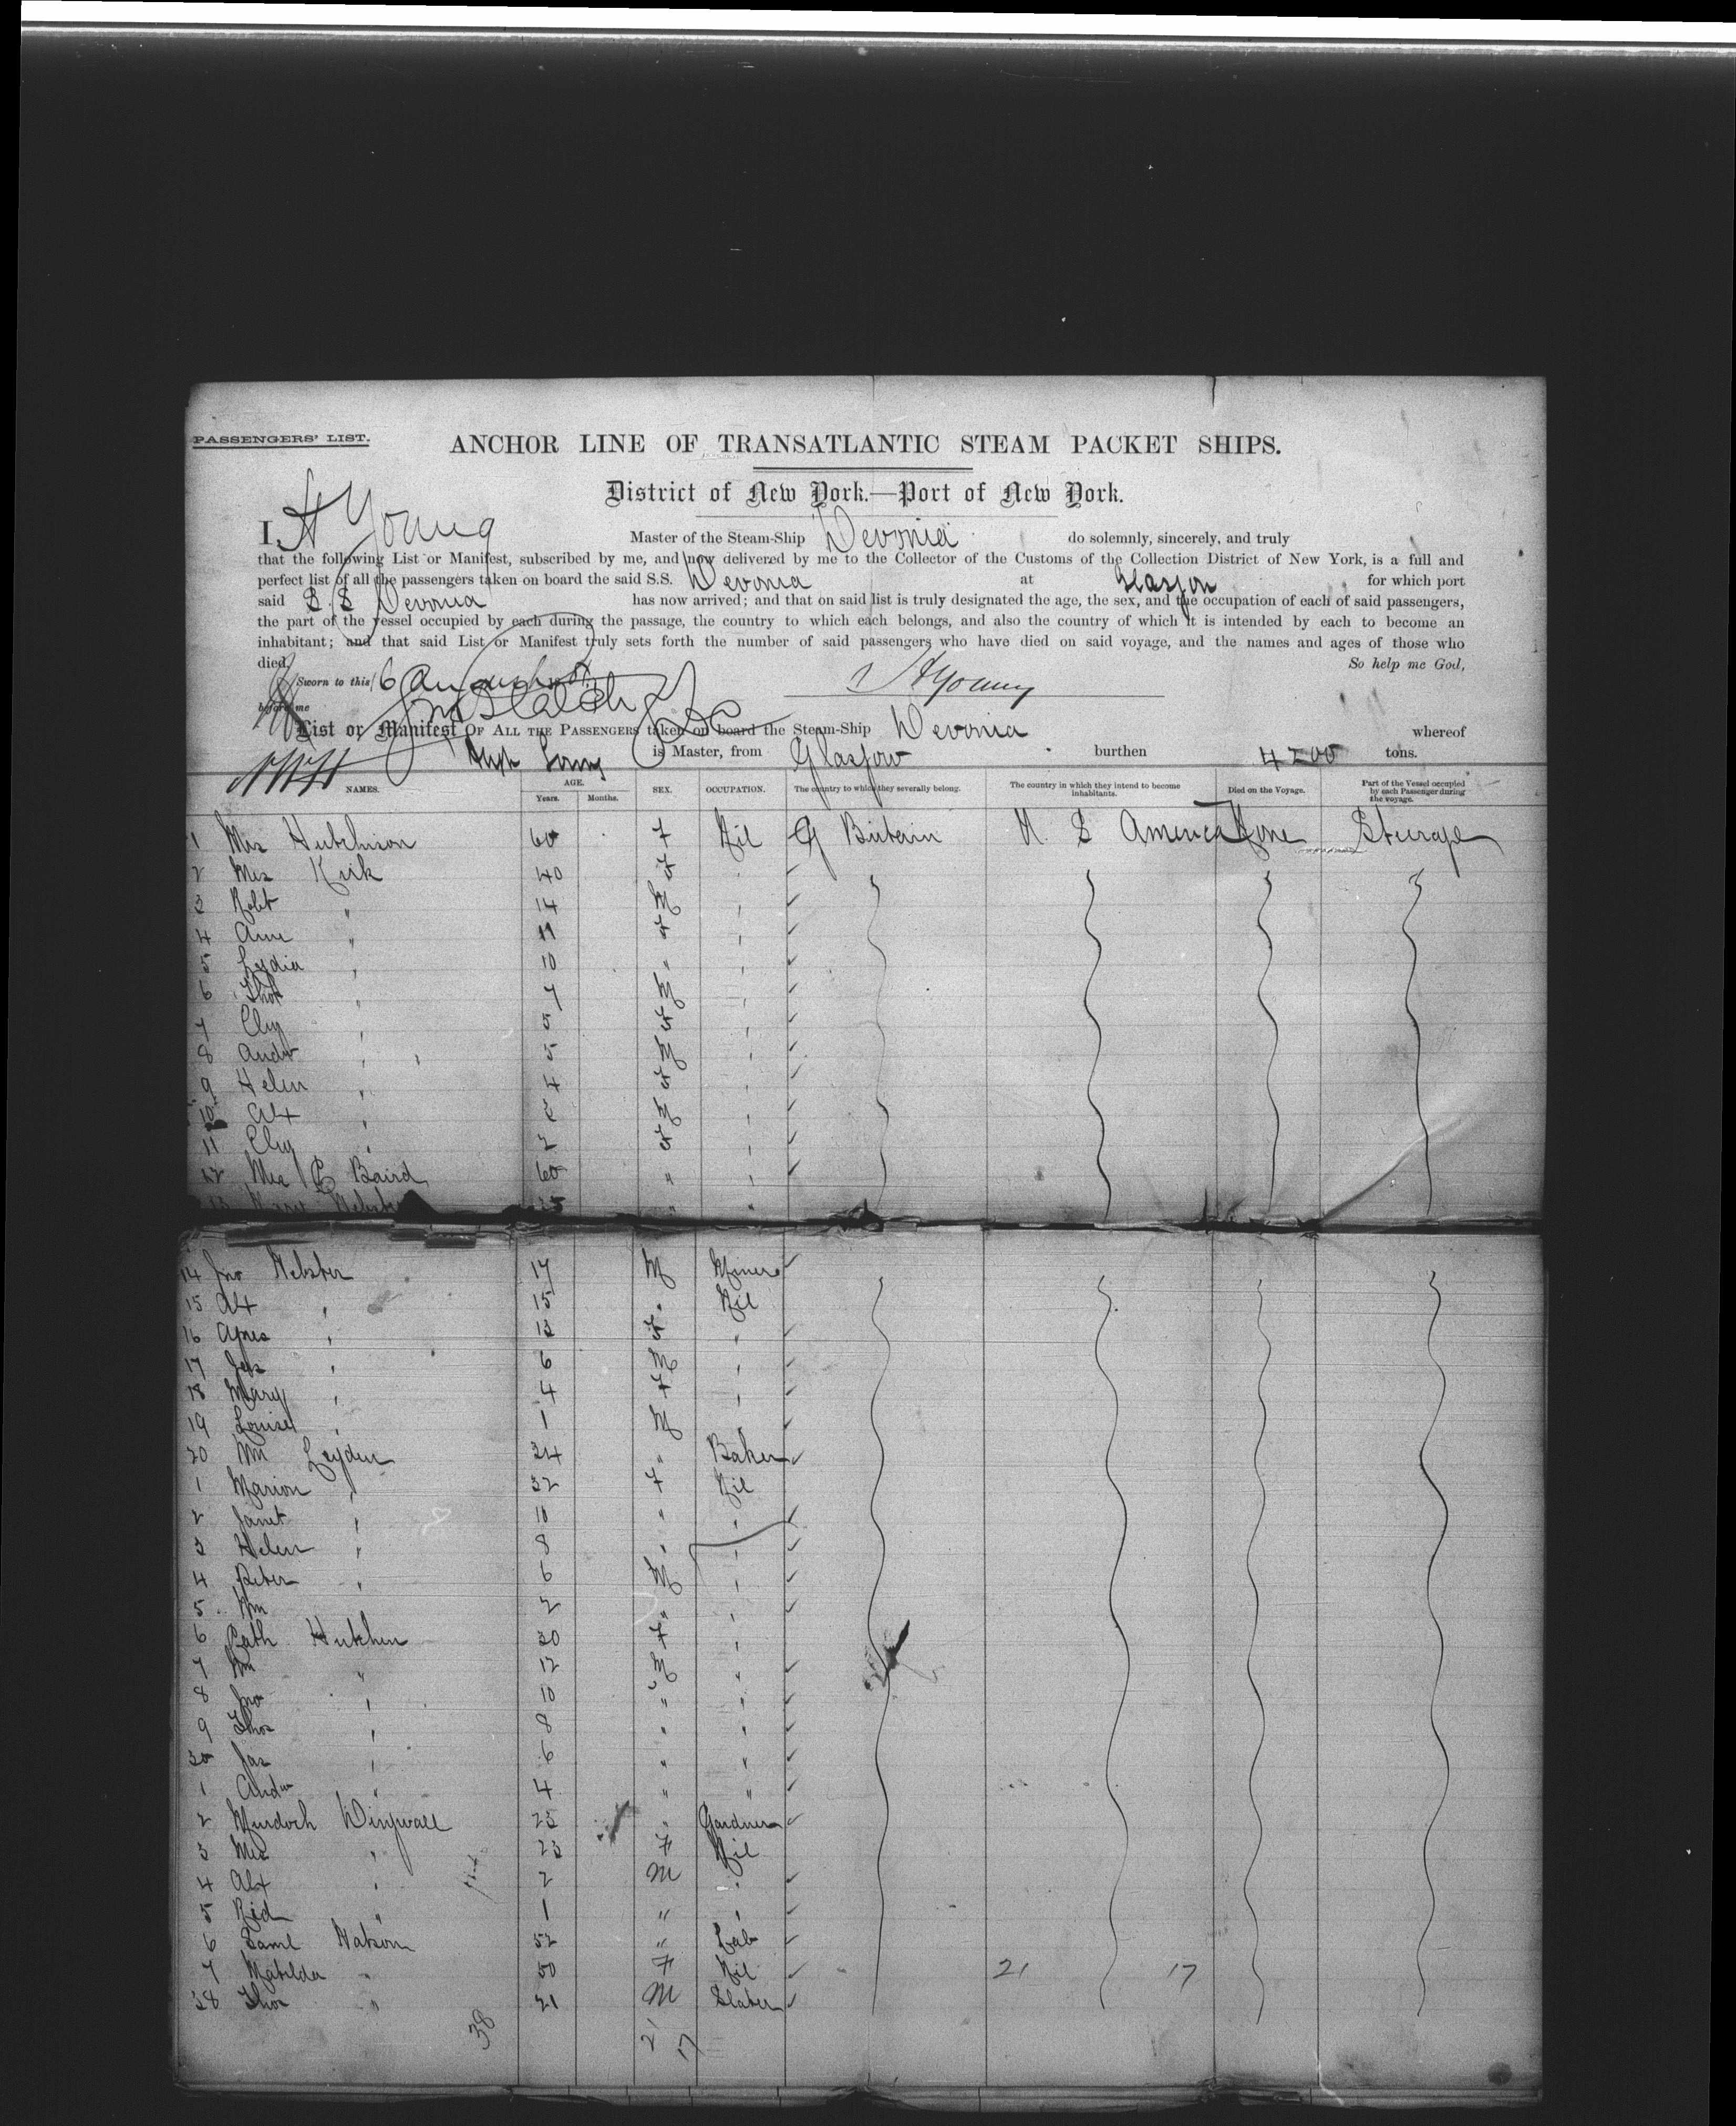 PASSENGERS' LIST.
ANCHOR LINE OF TRANSATLANTIC STEAM PACKET SHIPS.
District of New York.—Port of New York.
I, H Young Master of the Steam-Ship Devonia do solemnly, sincerely, and truly
that the following List or Manifest, subscribed by me, and now delivered by me to the Collector of the Customs of the Collection District of New York, is a full and
perfect list of all the passengers taken on board the said S.S. Devonia at Glasgow for which port
said S.S Devonia has now arrived; and that on said list is truly designated the age, the sex, and the occupation of each of said passengers,
the part of the vessel occupied by each during the passage, the country to which each belongs, and also the country of which it is intended by each to become an
inhabitant; and that said List or Manifest truly sets forth the number of said passengers who have died on said voyage, and the names and ages of those who
died. So help me God,
Sworn to this 6 August H Young
before me
List or Manifest OF ALL THE PASSENGERS taken on board the Steam-Ship Devonia whereof
Hugh Young is Master, from Glasgow burthen 4200 tons.
NAMES. AGE. Years. Months. SEX. OCCUPATION. The country to which they severally belong. The country in which they intend to become inhabitants. Died on the Voyage. Part of the Vessel occupied by each Passenger during the voyage.
1 Mrs Hutchison 60 F Nil G Britain U. S America None Steerage
2 Mrs Kirk 40 F
3 Robt " 14 M "
4 Ann " 11 F "
5 Lydia " 10 " "
6 Thos " 7 M "
7 Eliz " 5 F "
8 Andw " 5 M "
9 Helen " 4 F "
10 Alx " 3 M "
11 Eliz " 2 F "
12 Mrs C Baird 60 " "
13 Mary Webster 35 " "
14 Jno Webster 17 M Miner
15 Alx " 15 " Nil
16 Agnes " 13 F "
17 Jas " 6 M "
18 Mary " 4 F "
19 Louisa " 1 M
20 Wm Leyden 34 " Baker
1 Marion " 32 F Nil
2 Janet " 10 " "
3 Helen " 8 " "
4 Peter " 6 M "
5 Wm 2 " "
6 Cath Hutchen 30 F "
7 Wm " 12 M "
8 Jno " 10 " "
9 Thos " 8 " "
30 Jas " 6 " "
1 Andw " 4 " "
2 Murdoch Dingwall 25 " Gardner
3 Mrs " 23 F Nil
4 Alx " 2 M "
5 Rid " 1 " "
6 Saml Watson 52 " Lab
7 Matilda " 50 F Nil 21 17
38 Thos " 21 M Slater
38 21 17